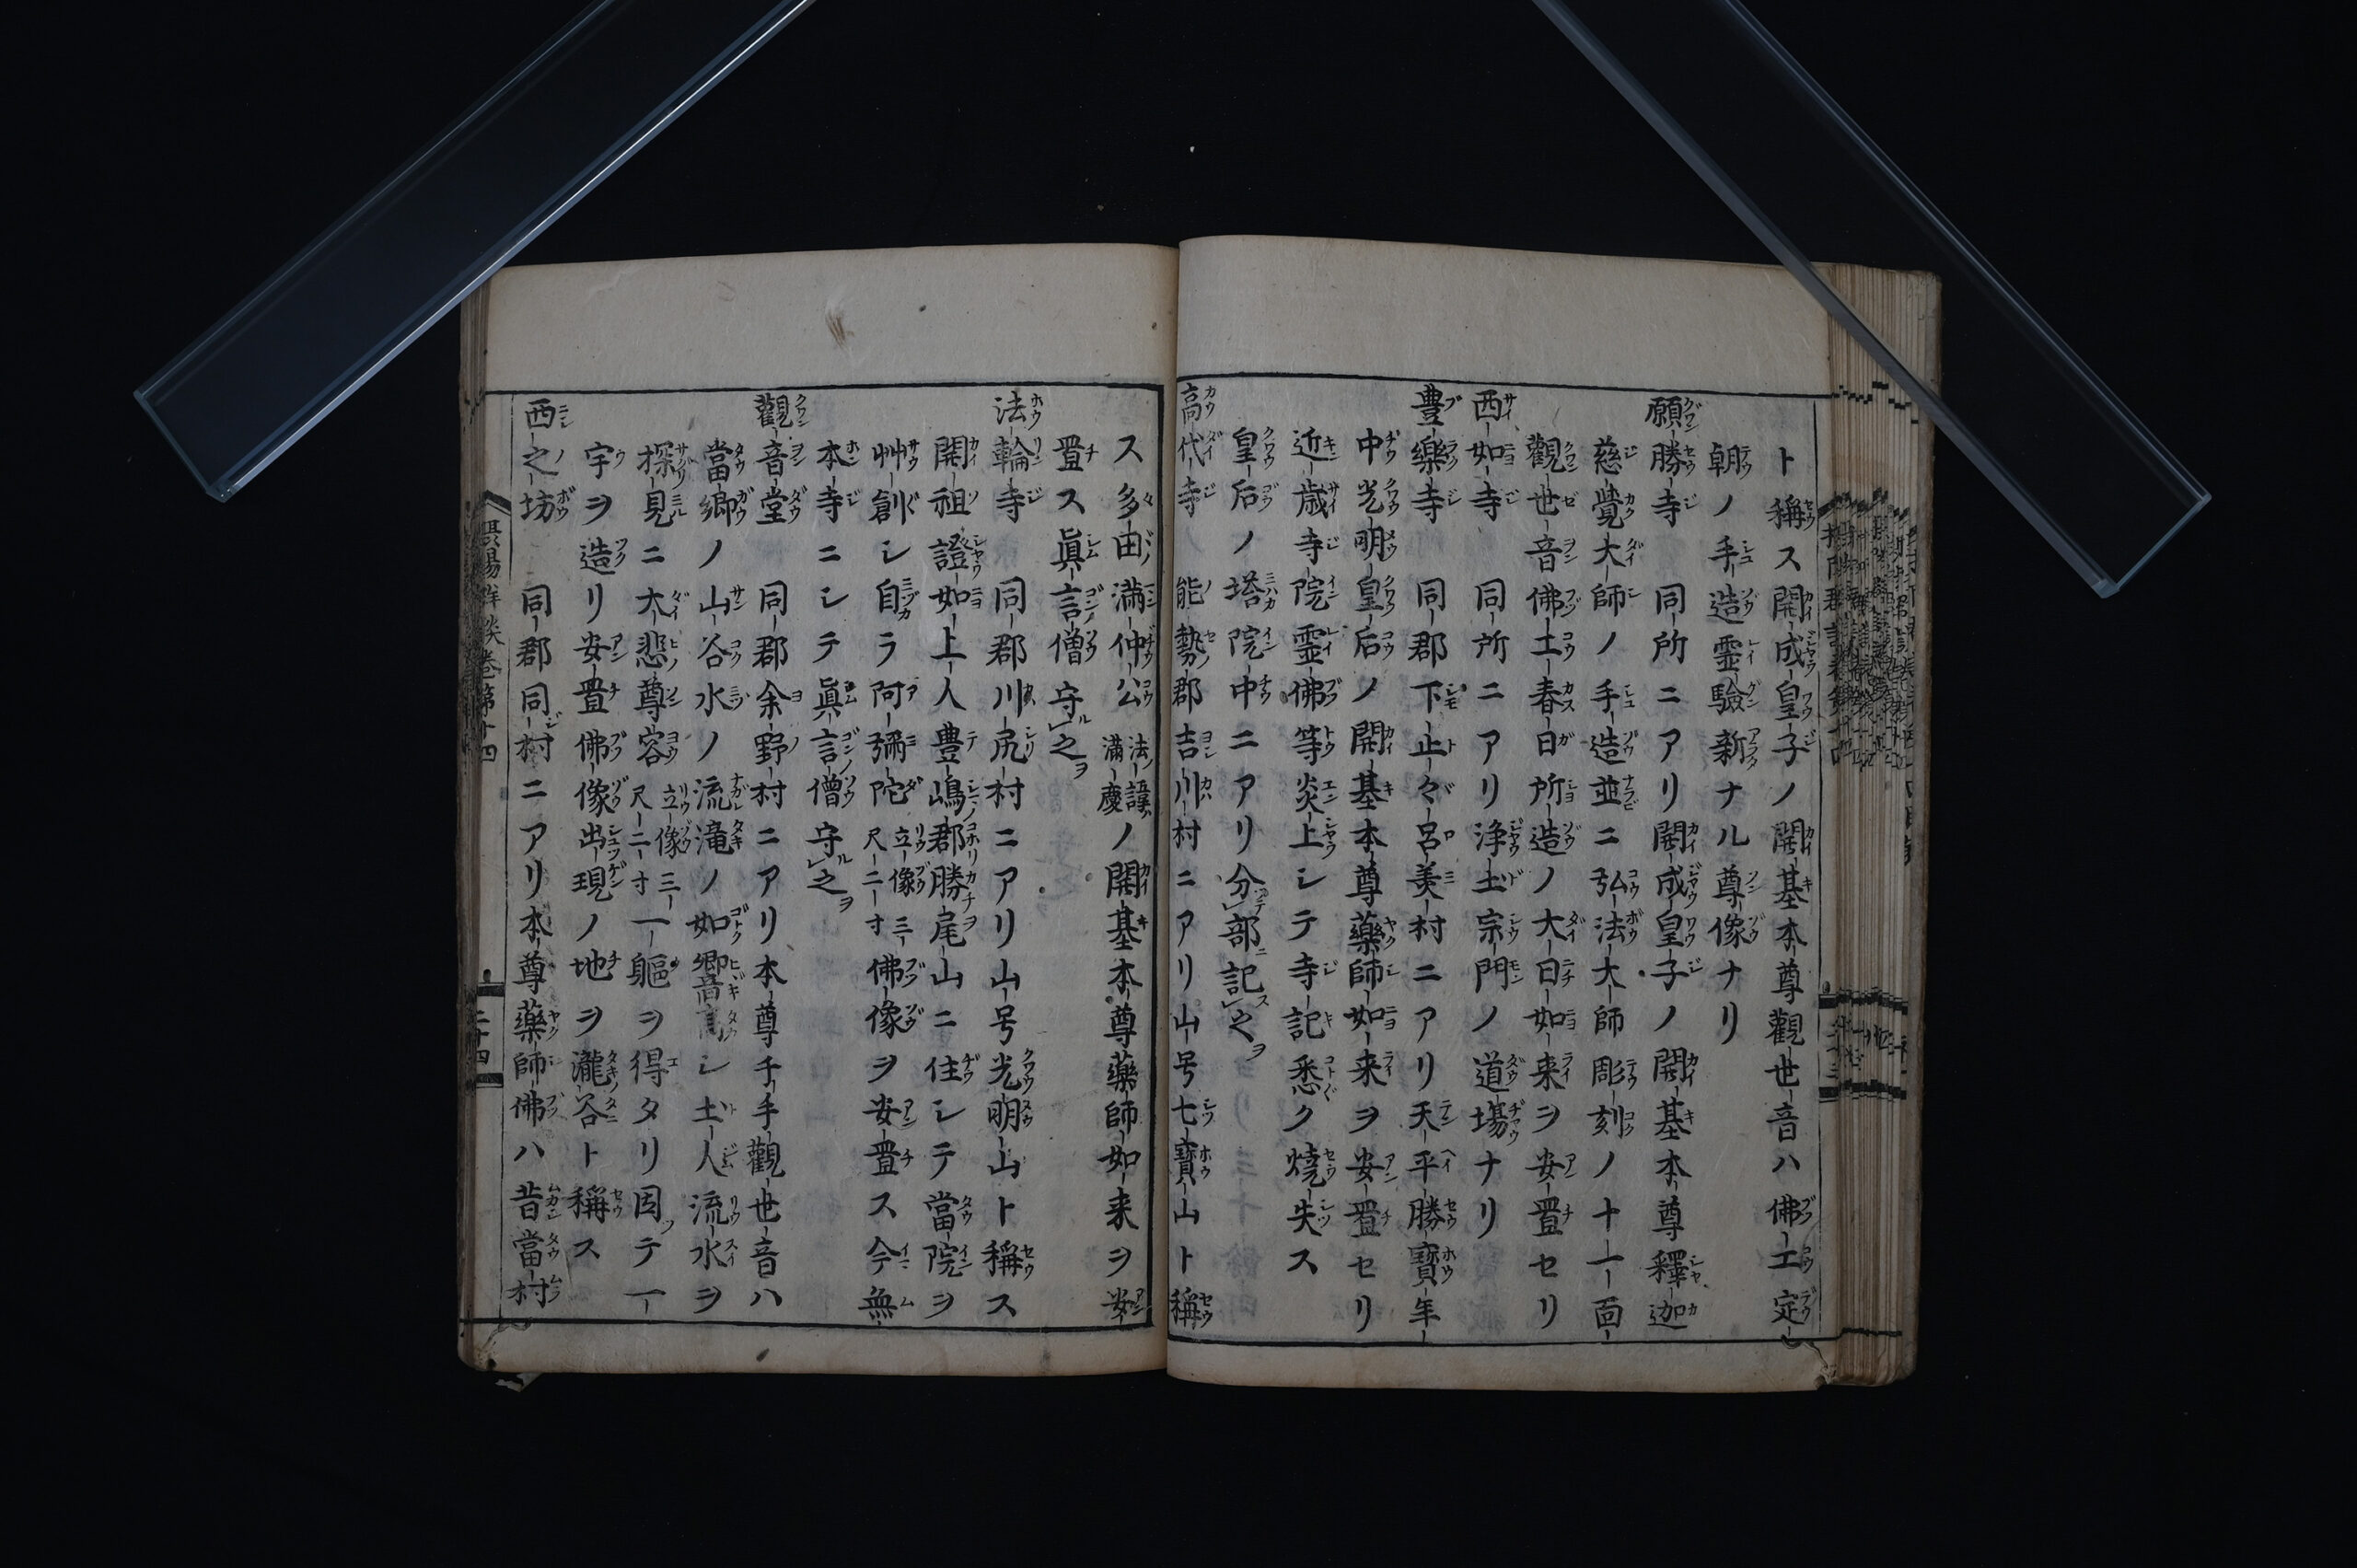 ト稱ス開成皇子ノ開基本尊觀世音ハ佛工定
朝ノ手造霊驗新ナル尊像ナリ
願勝寺 同所ニアリ開成皇子ノ開基本尊釋迦
慈覺大師ノ手造並ニ弘法大師彫刻ノ十一面
觀世音佛工春日所造ノ大日如来ヲ安置セリ
西如寺 同所ニアリ浄土宗門ノ道場ナリ
豊樂寺 同郡下止々呂美村ニアリ天平勝寳年
中光明皇后ノ開基本尊藥師如来ヲ安置セリ
近歳寺院霊佛等炎上シテ寺記悉ク燒失ス
皇后ノ塔院中ニアリ分部記之
高代寺 能勢郡吉川村ニアリ山号七寳山ト稱
ス多田滿仲公法諱滿慶ノ開基本尊藥師如来ヲ安
置ス眞言僧守之
法輪寺 同郡川尻村ニアリ山号光明山ト稱ス
開祖證如上人豊嶋郡勝尾山ニ住シテ當院ヲ
艸創シ自ラ阿彌陀立像三尺二寸佛像ヲ安置ス今無
本寺ニシテ眞言僧守之
觀音堂 同郡余野村ニアリ本尊千手觀世音ハ
當郷ノ山谷水ノ流滝ノ如響高シ土人流水ヲ
探見ニ大悲尊容立像三尺二寸一軀ヲ得タリ因テ一
宇ヲ造リ安置佛像出現ノ地ヲ瀧谷ト稱ス
西之坊 同郡同村ニアリ本尊藥師佛ハ昔當村
巻第十四
二十四